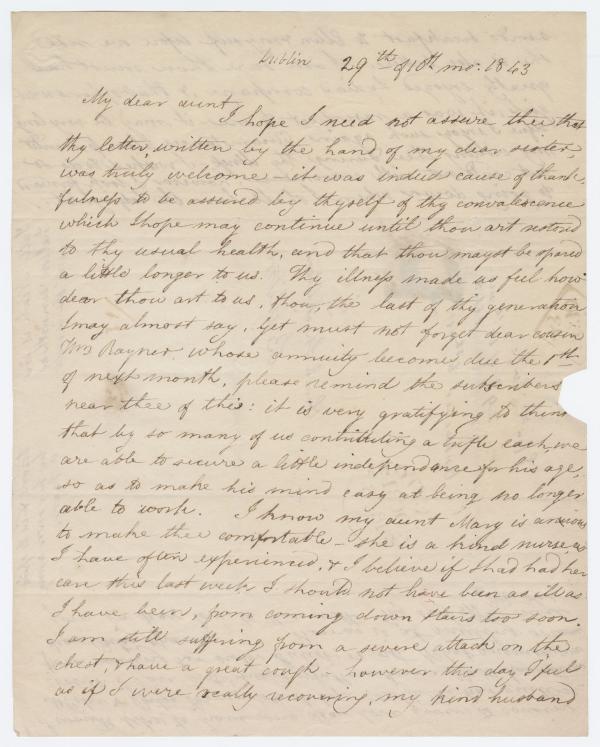 Dublin 29th of 10th mo: 1843
My dear aunt,
I hope I need not assure thee that
thy letter, written by the hand of my dear sister,
was truly welcome - it was indeed cause of thank-
fulness to be assured by thyself of thy convalescence
which I hope may continue until thou art restored
to thy usual health, and that thou mayst be spared
a little longer to us. Thy illness made us feel how
dear thou art to us, thou, the last of thy generation
I may almost say, yet must not forget dear cousin
Rayner, whose annuity becomes due the 1th
of next month, please remind the subscribers
near thee of this: it is very gratifying to think
that by so many of us contributing a trifle each, we
are able to secure a little independance for his age,
so as to make his mind easy at being no longer
able to work. I know my aunt Mary is anxious
to make thee comfortable - she is a kind nurse, as
I have often experienced, & I believe if I had had her
care this last week I should not have been as ill as
I have been, from coming down stairs too soon.
I am still suffering from a severe attack on the
chest, & have a great cough - however this day I feel
as if I were really recovering, my kind husband